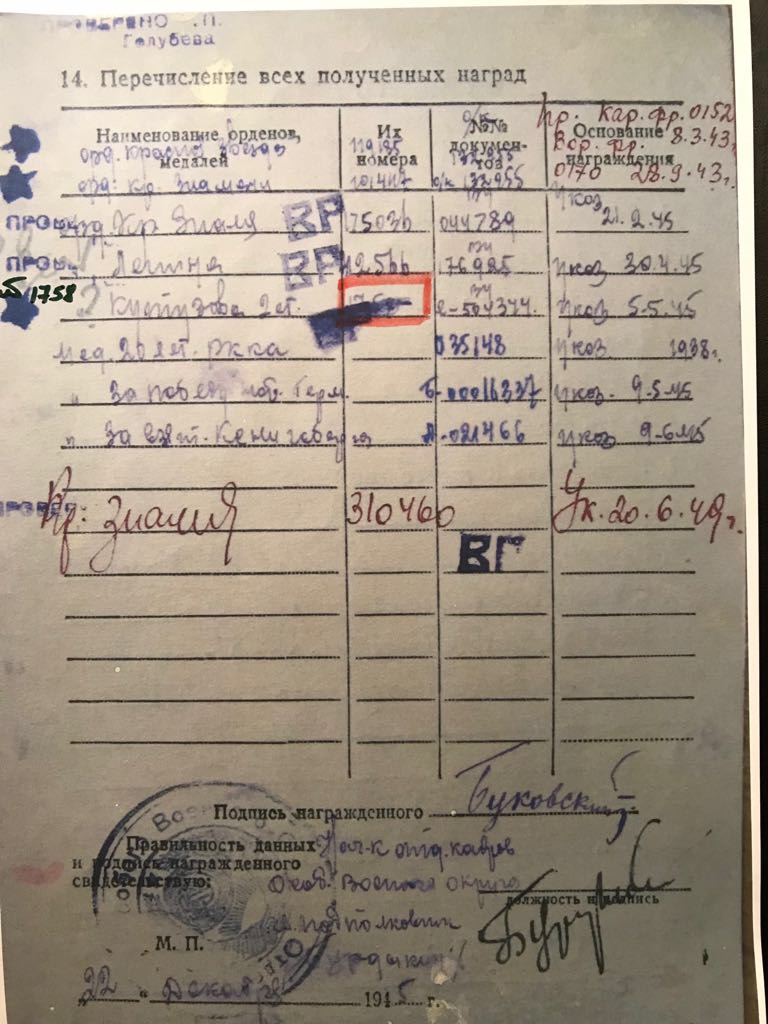 ПРОВЕРЕНО
Голубева
14. Перечисление всех полученных наград
Наименование орденов, медалей
Их номера
№№ документов
Основание награждения
пр. Кар. фр. 0152
8.3.43г.
Вор. фр.
0170 28.9.43г.
орд. Красная Звезда 119185
орд. Кр. Знамени
орд. Кр. Знамя ВР 75036 044789 указ 21.2.45
" Ленина ВР 176985 указ 30.4.45
1758
" Кутузова 2 ст. указ 5.5.45
мед. 20 лет. РККА 035148 указ 1938г.
" За победу Герм. Б-00016337 указ 9-5-45
" За взят. Кенигсберга А-021466 указ 9-6-45
Кр: Знамя 310460 Ук. 20.6.49г.
ВР
Подпись награжденного Буковский
Правильность данных
и подпись награжденного
свидетельствую:
Нач-к отд. кадров
Военного округа
должность и подпись
подполковник
М. П.
"22" Декабря 1945 г.